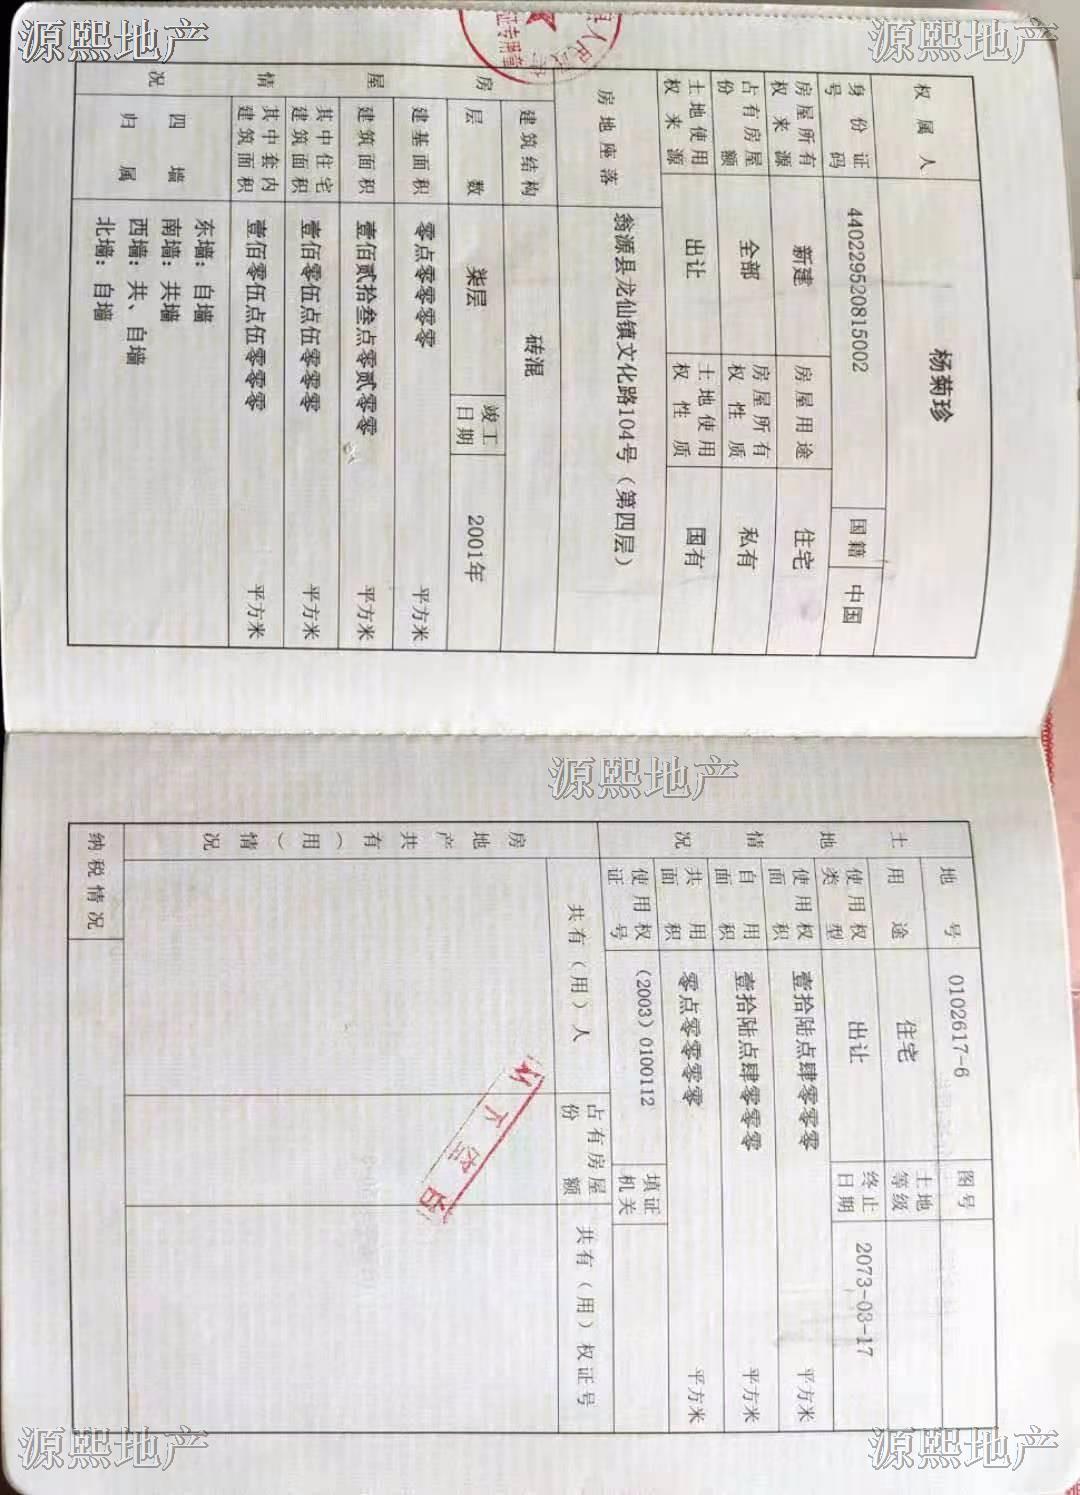 源熙地产
源熙地产
权属人 杨菊珍
身份证号码 440229520815002 国籍 中国
房屋所有权来源 新建 房屋用途 住宅
占有房屋份额 全部 房屋所有权性质 私有
土地使用权来源 出让 土地使用权性质 国有
房地座落 翁源县龙仙镇文化路104号（第四层）
房屋情况
建筑结构 砖混
层数 柒层 竣工日期 2001年
建基面积 零点零零零零 平方米
建筑面积 壹佰贰拾叁点零贰零零 平方米
其中住宅建筑面积 壹佰零伍点伍零零零 平方米
其中套内建筑面积 壹佰零伍点伍零零零 平方米
四墙归属
东墙：自墙
南墙：共墙
西墙：共、自墙
北墙：自墙
证专用章
源熙地产
土地情况
地号 0102617-6 图号
用途 住宅 土地等级
使用权类型 出让 终止日期 2073-03-17
使用权面积 壹拾陆点肆零零零 平方米
自用面积 壹拾陆点肆零零零 平方米
共用面积 零点零零零零 平方米
使用权证号 (2003)0100112 填证机关
房地产共有（用）情况
共有（用）人 占有房屋份额 共有（用）权证号
纳税情况
源熙地产
源熙地产